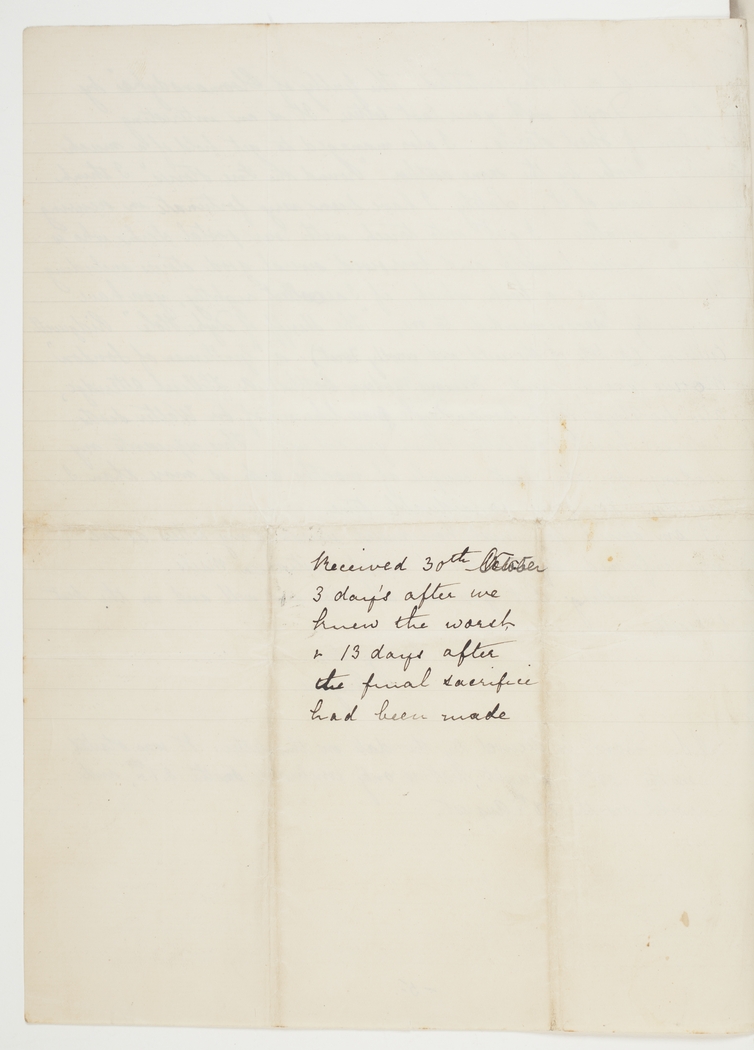 Received 30th October
3 day's after we
knew the worst,
& 13 days after
the final sacrifice
had been made